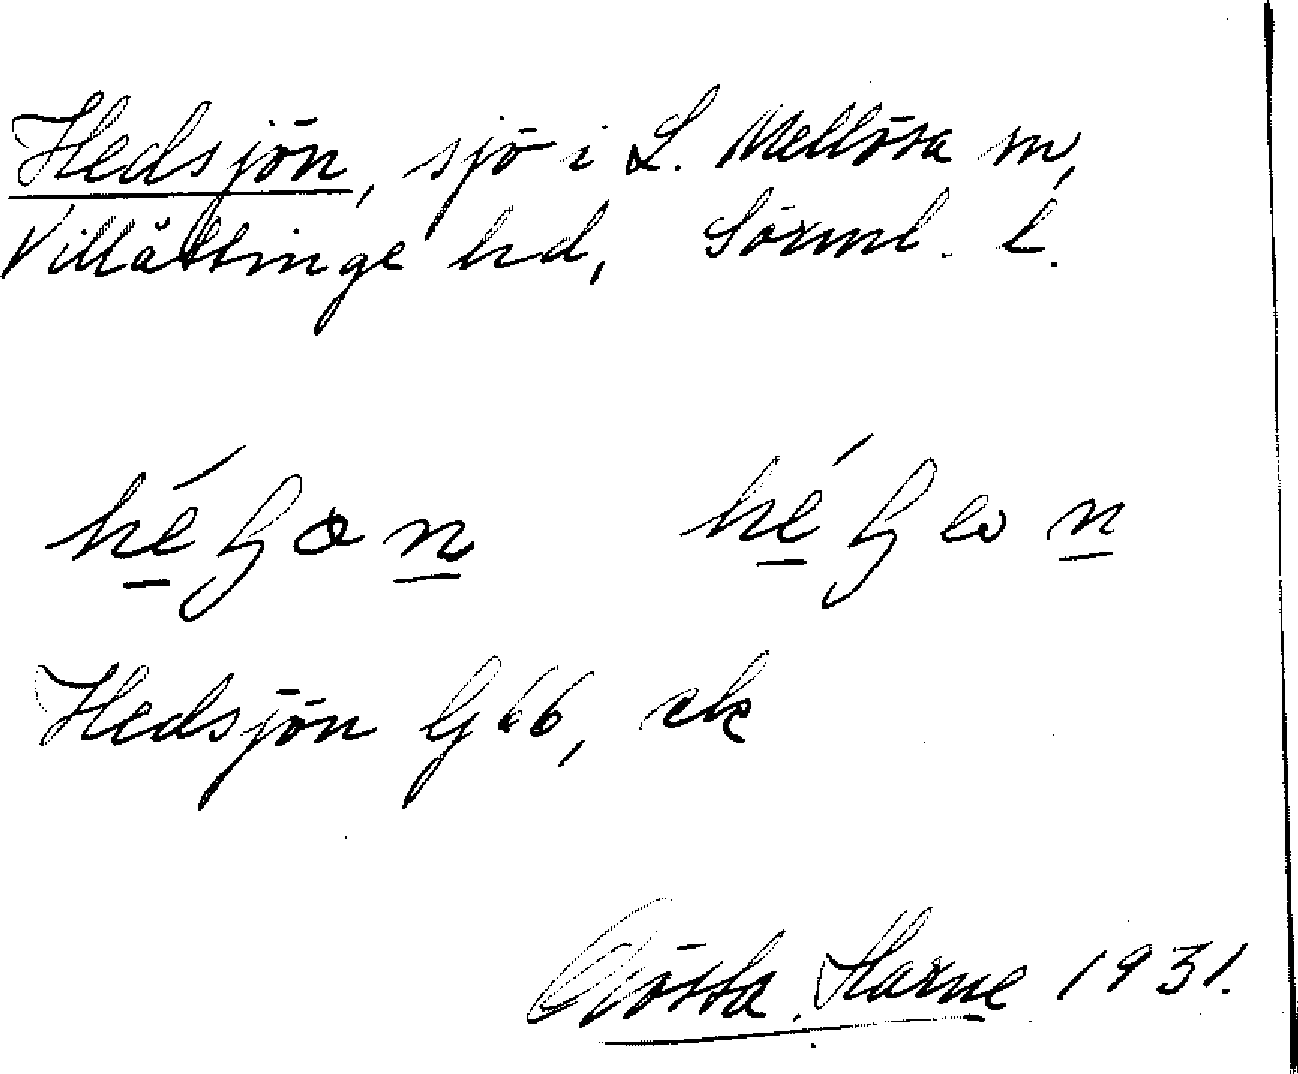 Hedsjön, sjö i L. Mellösa sn,
Villåttinge hd, Sörml. l.
Hedsjön G 66, ek
Gösta Harne 1931.